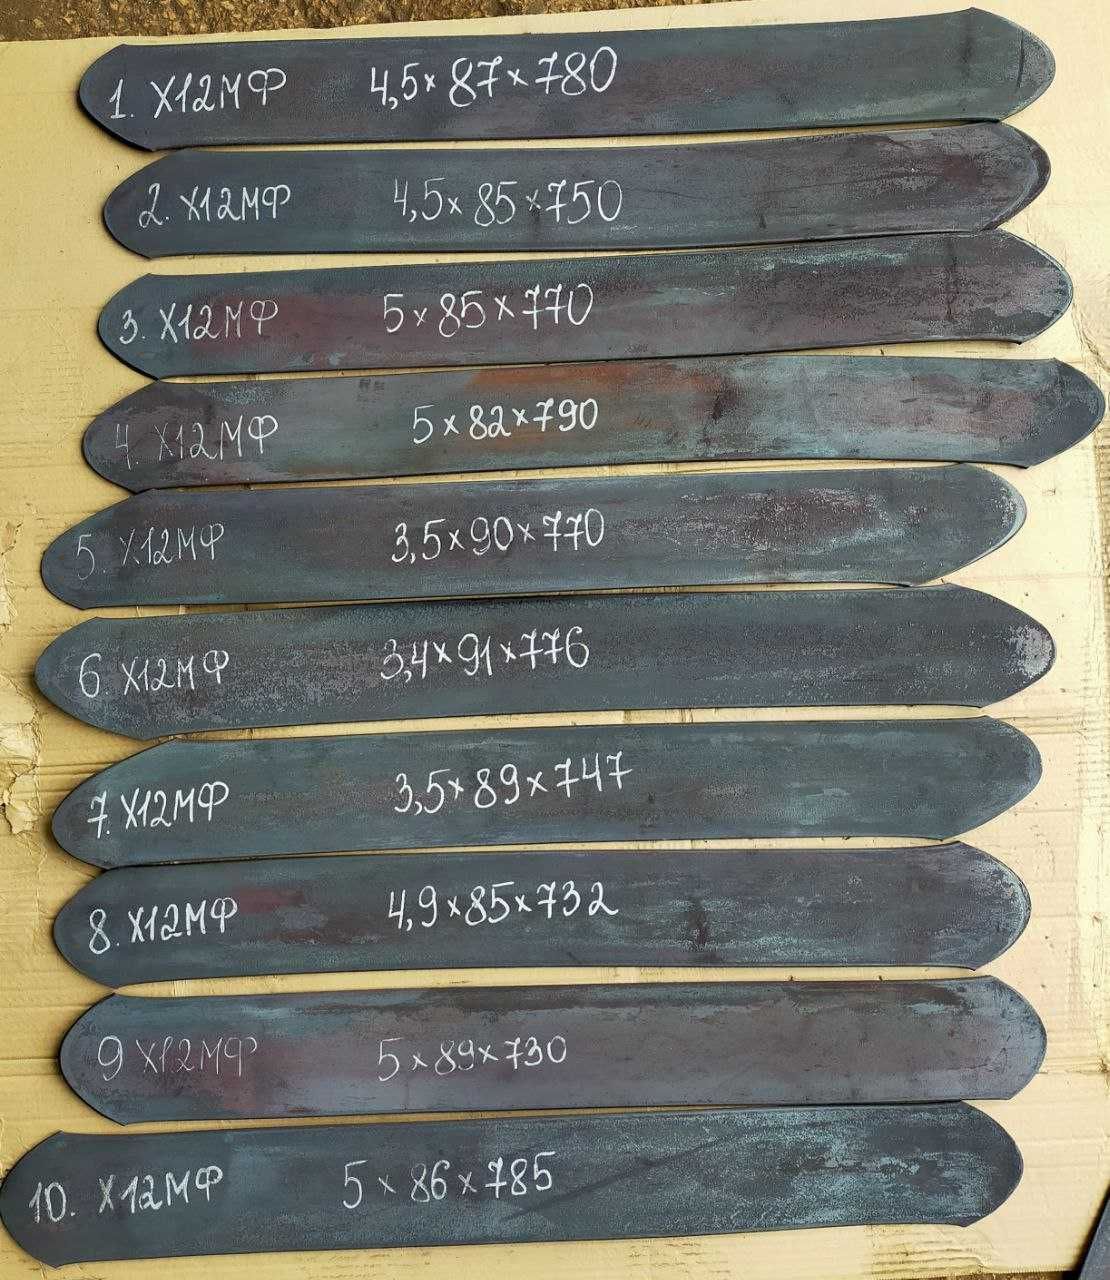 1. Х12МФ 4,5×87×780
2. Х12МФ 4,5×85×750
3. Х12МФ 5×85×770
4. Х12МФ 5×82×790
5. Х12МФ 3,5×90×770
6. Х12МФ 3,4×91×776
7. Х12МФ 3,5×89×747
8. Х12МФ 4,9×85×732
9 Х12МФ 5×89×730
10. Х12МФ 5×86×785